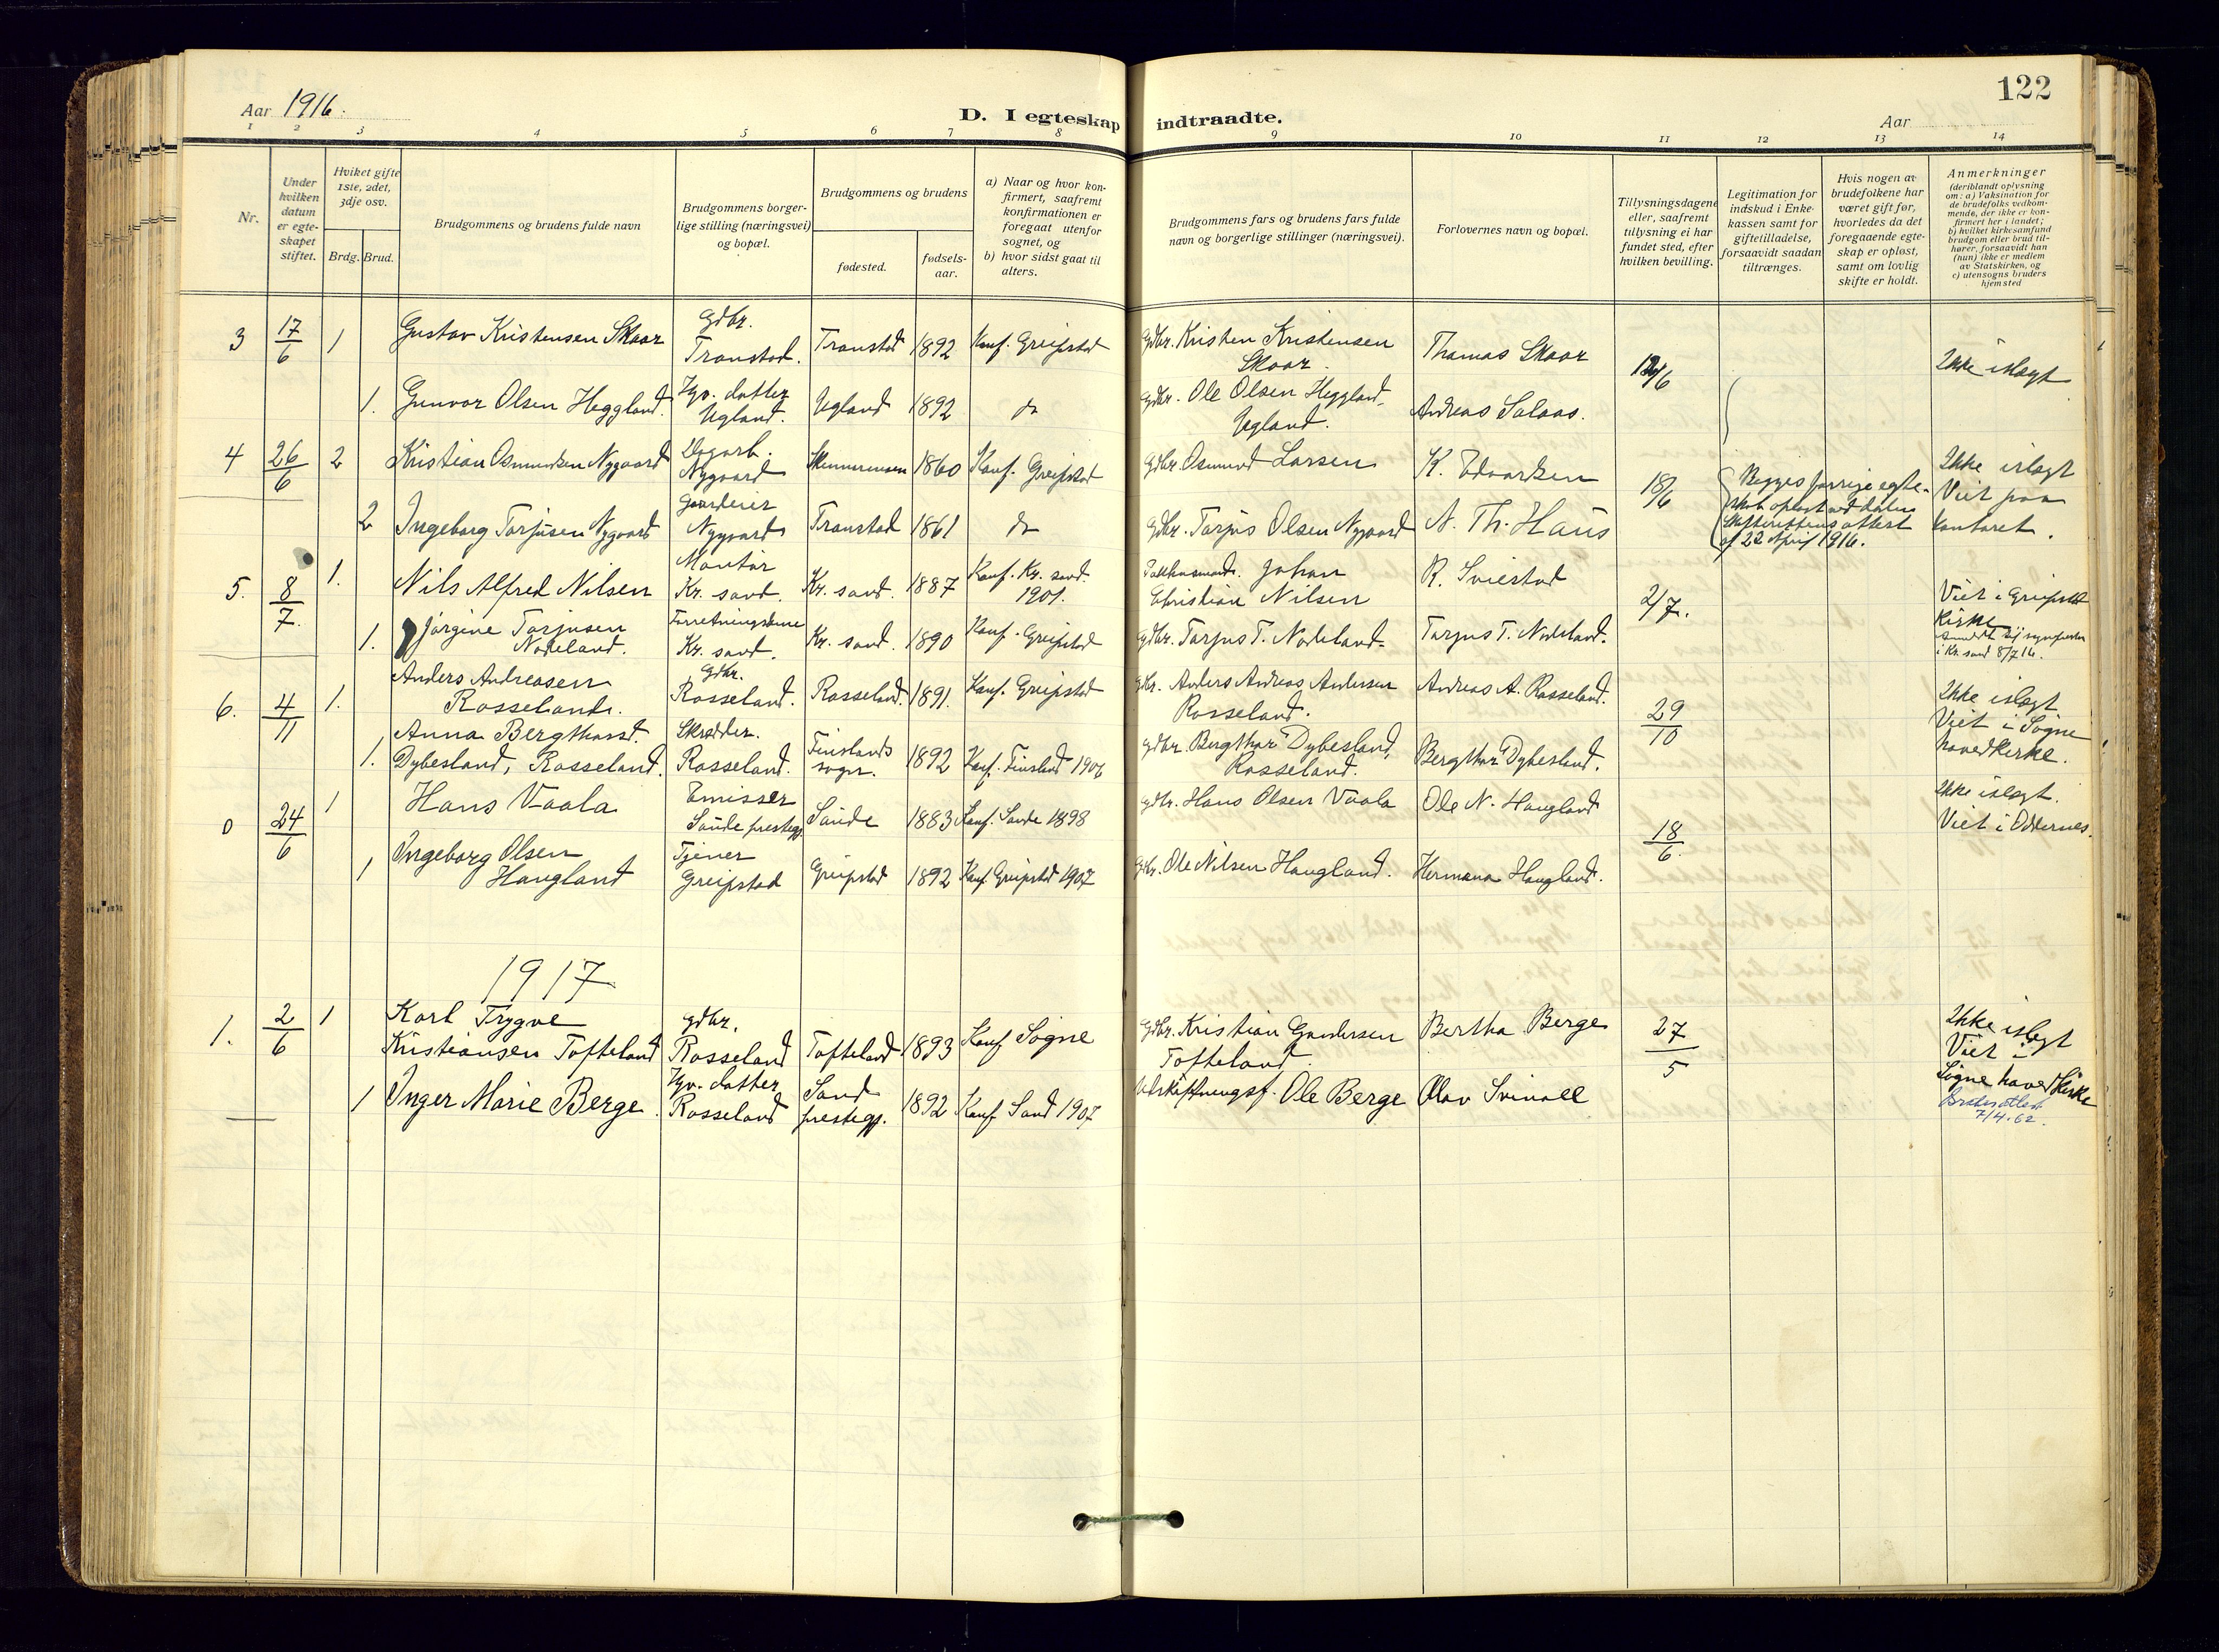 122
Aar 1916.
D. I egteskap indtraadte.
Aar
1 2 3 4 5 6 7 8 9 10 11 12 13 14
Nr.
Under hvilken datum er egteskapet stiftet.
Hviket gifte 1ste, 2det, 3dje osv.
Brdg. Brud.
Brudgommens og brudens fulde navn
Brudgommens borgerlige stilling (næringsvei) og bopæl.
Brudgommens og brudens
fødested.
fødselsaar.
a) Naar og hvor konfirmert, saafremt konfirmationen er foregaat utenfor sognet, og
b) hvor sidst gaat til alters.
Brudgommens fars og brudens fars fulde navn og borgerlige stillinger (næringsvei).
Forlovernes navn og bopæl.
Tillysningsdagene eller, saafremt tillysning ei har fundet sted, efter hvilken bevilling.
Legitimation for indskud i Enkekassen samt for giftetilladelse, forsaavidt saadan tiltrænges.
Hvis nogen av brudefolkene har været gift før, hvorledes da det foregaaende egteskap er opløst, samt om lovlig skifte er holdt.
Anmerkninger
(deriblandt oplysning om: a) Vaksination for de brudefolks vedkommende, der ikke er konfirmert her i landet; b) hvilket kirkesamfund brudgom eller brud tilhører, forsaavidt han (hun) ikke er medlem av Statskirken, og c) utensogns bruders hjemsted
3 17/6 1 Gustav Kristensen Skaar Gdbr. Transtad. Transtad 1892 Konf. Greipstad Gdbr. Kristen Kristensen Skaar. Thomas Skaar /6 Ikke i slegt
1. Gunvor Olsen Heggland. Hgv. datter Ugland. Ugland 1892 do Gdbr. Ole Olsen Heggland, Ugland. Andreas Salaas.
4 26/6 2 Kristian Osmundsen Nygaard Nygaard 1860 Konf. Greipstad Gdbr. Osmund Larsen K. Edvardsen 18/6 Begges forrige egteskab opløst ved døden Skifterettens attest af 22 April 1916. Ikke i slegt Viet paa kontoret.
2 Ingeborg Torjusen Nygaard Nygaard Transtad 1861 do Gdbr. Torjus Olsen Nygaard A. Th. Haus
5. 8/7. 1. Nils Alfred Nilsen Montør Kr. sand. Kr. sand. 1887 Konf. Kr. sand. 1901. Johan Christian Nilsen R. Sviestad 2/7. Viet i Greipstad Kirke
1. Jørgine Torjusen Nodeland. Kr. sand. Kr. sand. 1890 Konf. Greipstad Gdbr. Torjus T. Nodeland. Torjus T. Nodeland. i Kr. sand 8/7 16.
6. 4/11 1. Anders Andreasen Rosseland. Gdbr. Rosseland. Rosseland. 1891. Konf. Greipstad Gdbr. Anders Andreas Andersen Rosseland. Andreas A. Rosseland. 29/10 Ikke i slegt Viet i Søgne hovedkirke.
1. Anna Bergthorsd. Dybesland, Rosseland. Skrædder. Rosseland. Finslands sogn. 1892 Konf. Finsland 1906 Gdbr. Bergthor Dybesland, Rosseland. Bergthor Dybesland.
0 24/6 1 Hans Vaala Emissær Saude prestegj. Saude 1883 Konf. Saude 1898 Gdbr. Hans Olsen Vaala Ole N. Haugland 18/6. Ikke i slegt. Viet i Oddernes.
1 Ingeborg Olsen Haugland Tjener Greipstad Greipstad 1892 Konf. Greipstad 1907 Gdbr. Ole Nilsen Haugland. Hermana Haugland.
1917
1. 2/6 1 Karl Trygve Kristiansen Tofteland Gdbr. Rosseland Tofteland 1893 Konf Sogne Gdbr. Kristian Gundersen Tofteland. Bertha Berge 27/5 Ikke i slegt Viet i Søgne hovedkirke
1 Inger Marie Berge. Hgv. datter Rosseland Sand prestegj. 1892 Konf Sand 1907 Utskiftningsf. Ole Berge Olav Svinall 7/4.62.